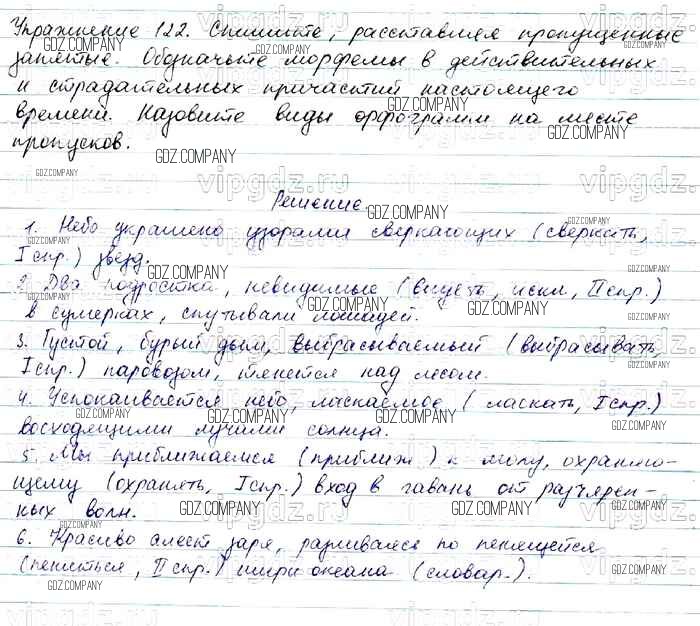 Упражнение 122. Спишите, расставляя пропущенные
запятые. Обозначьте морфемы в действительных
и страдательных причастий настоящего
времени. Назовите виды орфограмм на месте
пропусков.
Решение.
1. Небо украшено узорами сверкающих (сверкать,
I спр.) звезд.
2. Два подростка, невидимые (видеть, искл, II спр.)
в сумерках, спутывали лошадей.
3. Густой, бурый дым, выбрасываемый (выбрасывать,
I спр.) паровозом, тянется над лесом.
4. Успокаивается небо, ласкаемое (ласкать, I спр.)
восходящими лучами солнца.
5. Мы приближаемся (приближ ) к молу, охраняю-
щему (охранять, I спр.) вход в гавань от разъярен-
ных волн.
6. Красиво алеет заря, разливаясь по пенящейся
(пениться, II спр.) шири океана (словар.).
GDZ.COMPANY
vipgdz.ru